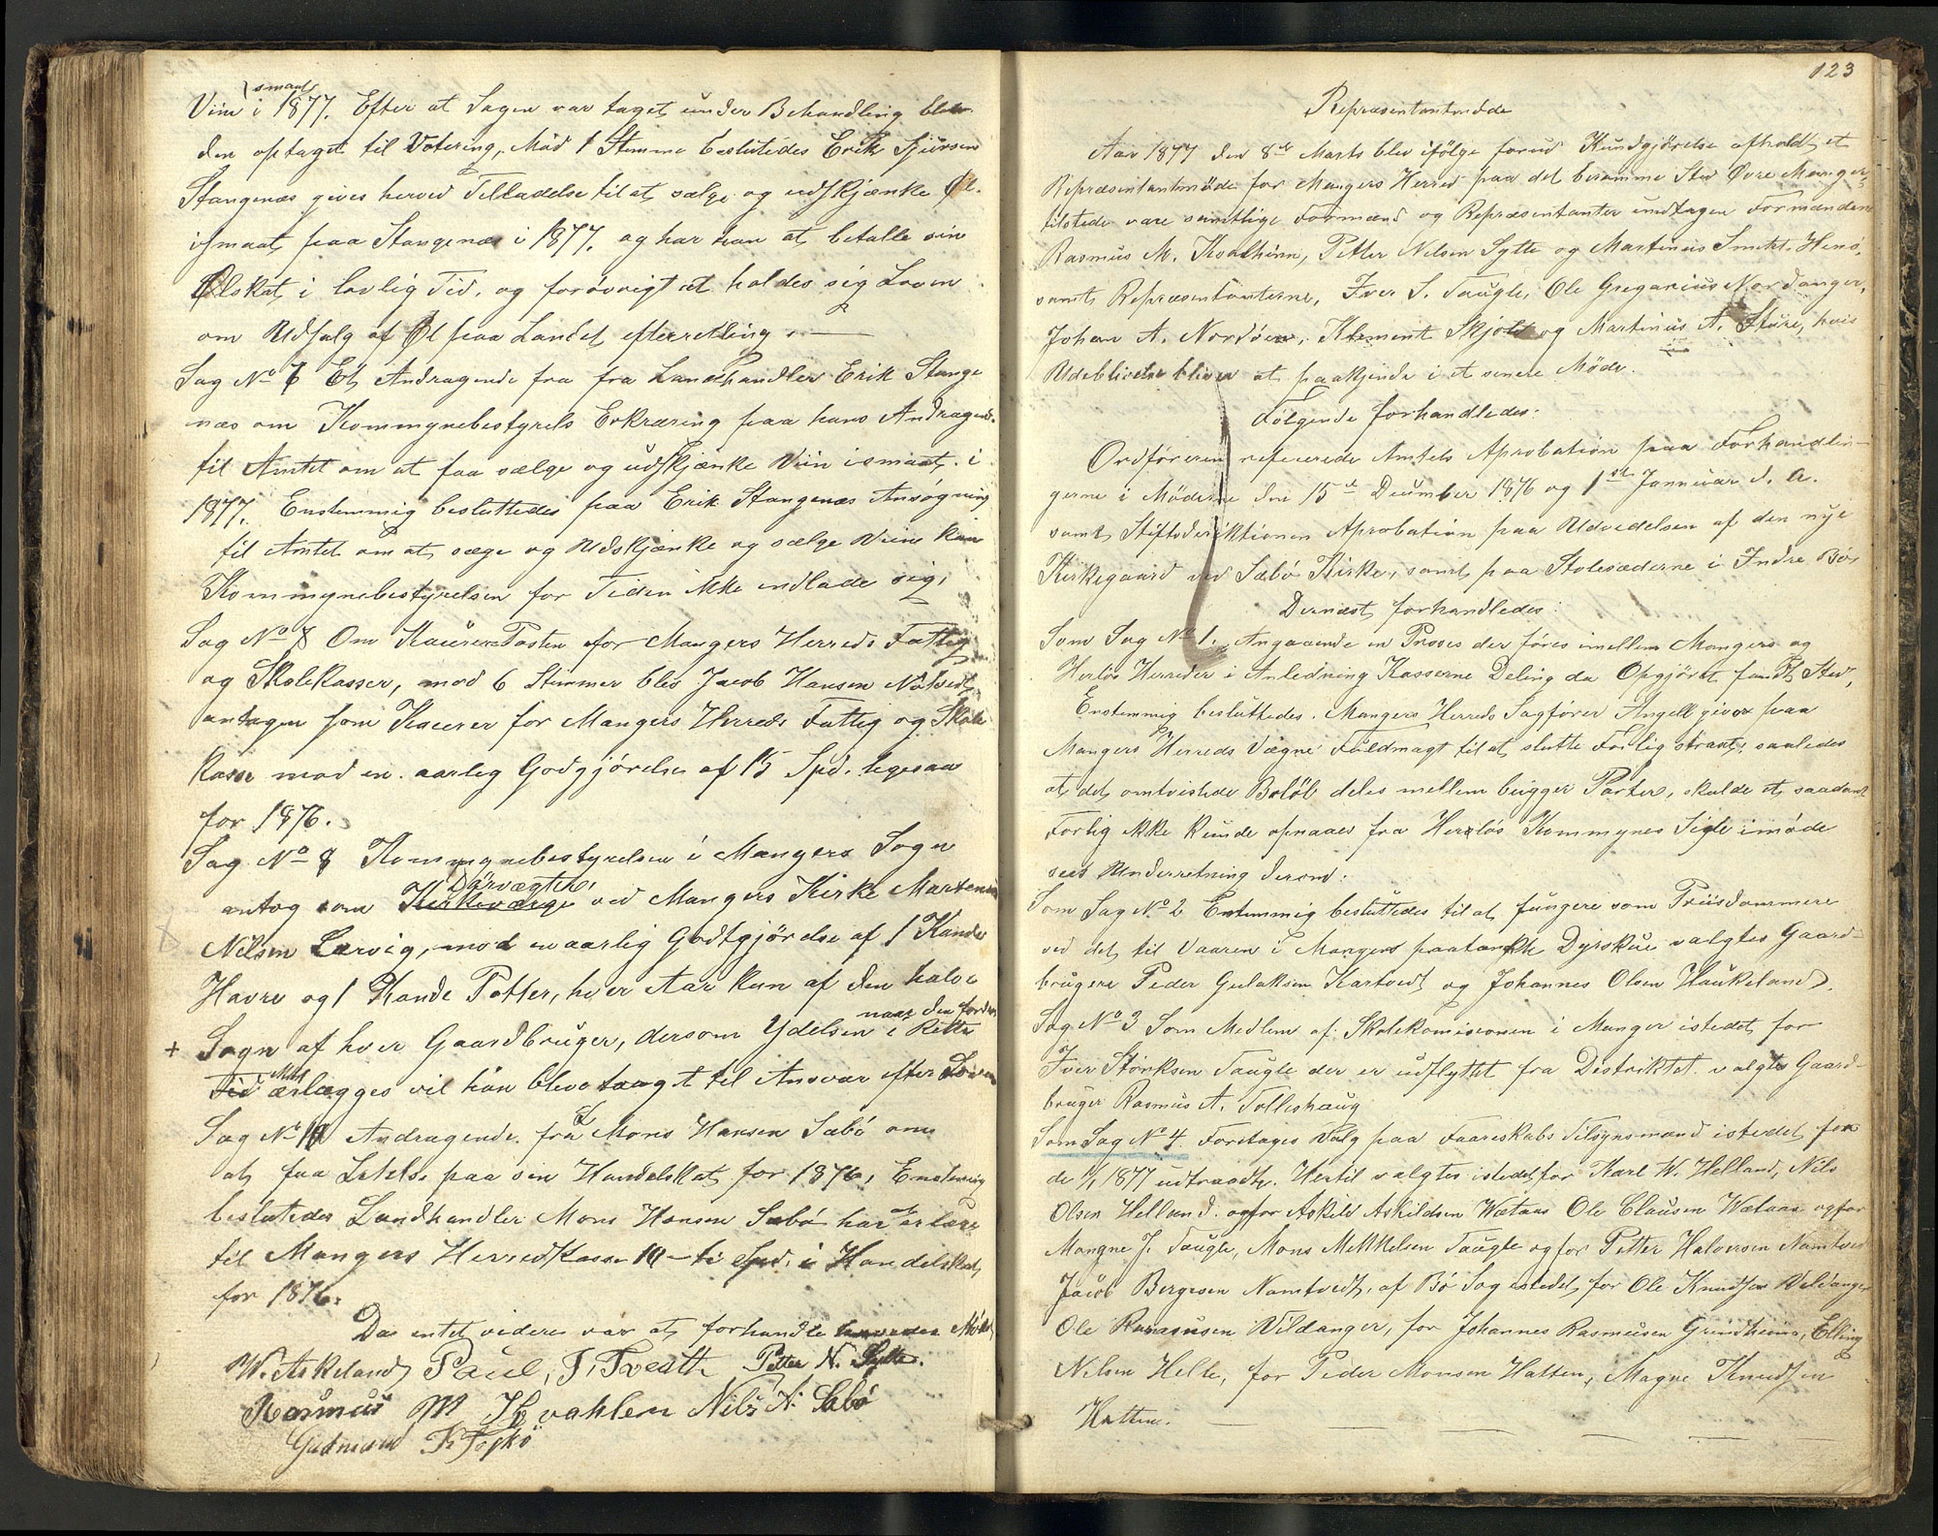 smaat
Viin i 1877. Efter at Sagen var taget under Behandling blev
den optaget til Votering, Mod 1 Stemme beslutedes Erik Sjursen
Stangenæs gives herved Tilladelse til at sælge og udskjænke Øl
ismaat paa Stangenæs i 1877, og har han at betalle sin
Ølskat i lovlig Tid, og forøvrigt at holdes sig Loven
om Udsalg af Øl paa Landet efterretling. —
Sag No 6 Et Andragende fra fra Landhandler Erik Stange
næs om Kommynebestyrels Erkræring paa hans Andragend.
til Amtet om at faa sælge og udskjænke Viin ismaat i
1877. Enstemmig besluttedes paa Erik Stangenæs Ansøgning
til Amtet om at sæge og Udskjænke og sælge Viin kan
Kommynebestyrelsen for Tiden ikke indlade sig.
Sag No 7 Om Kaserer Posten for Mangers Herreds Fattig
og Skolekasser, mod 6 Stimmer blev Jacob Hansen
antagen som Kacerer for Mangers Herreds Fattig og Skole
kasse mod en aarlig Godgjørelse af 15 Spd. legesaa
for 1876.
Sag No 8 Kommynebestyrelsen i Mangers Sogn
Dørvægter
antog som Kirkeværge ved Mangers Kirke Martenus
Nilsen Larvig, mod en aarlig Godtgjørelse af 1 Kande
Havre og 1 Kande Potter, hver Aar kun af den halve
naar den fordres
+ Sogn af hver Gaardbruger, dersom Ydelsen i Rette
ikke
Tid ærlægges vil han bleve taagt til Ansvar efter Loven
Sag No 10 Andragende fra Mons Hansen Sæbø om
at faa Letelse paa sin Handelskat for 1876, Enstemig
beslutedes Landhandler Mons Hansen Sæbø har erlægge
til Mangers HerredKasse 10 – ti Spd. i Handelskat
for 1876.
Da intet videre var at forhandle hævedes Mødet
W. Askeland Paul, J. Tveeth Petter N. Sylte.
Rasmus M Kvahlem Nils N. Sæbø
Gudmund K Toskø
123
Repræsentantmøde
Aar 1877 den 8de Marts blev ifølge forud Kundgjørelse afholdt et
Repræsentantmøde for Mangers Herred paa det berammede Sted Øvre Manger
tilstede vare samtlige Formænd og Repræsentanter undtagen Formændene
Rasmus M. Kvalheim, Petter Nilsen Sylte og Martinus Henø,
samt Repræsentanterne, Iver S. Taugle, Ole Gregarius Nordanger,
Johan A. Nordøen, Klement Skjold og Martinus A. Sture, hvis
Udeblivelse bliver at paakjende i et senere Møde.
Følgende forhandledes:
Ordføreren refererede Amtets Aprobation paa Forhandlin-
gerne i Møderne den 15de Deumber 1876 og 1ste Januuar d. A.
samt Stiftsderiktionen Aprobation paa Udvedelsen af den nye
Kirkegaard ved Sæbø Kirke, samt paa Stolesæderne i Indre Bø
Dernæst forhandledes:
Som Sag No 1. Angaaende en Proses der føres imellem Mangers og
Herlø Herreder i Anledning Kasserne Deling da Opgjøret fandt Sted,
Enstemmig besluttedes. Mangers Herreds Sagfører Angell giver paa
Mangers Herreds Vægne Fuldmagt til at slutte Forlig strax, saaledes
at det omtvistede Beløb deles mellem begger Parter, skulde et saadant
Forlig ikke kunde opnaaes fra Herløs Kommynes Side imøde
sees Underretning derom.
Som Sag No 2 Enstemmig besluttedes til at fungere som Priisdommere
ved det til Vaaren i Mangers paatænkte Dyrskue valgtes Gaard-
brugere Peder Gulaksen Kartvedt og Johannes Olsen Haukeland.
Sag No 3 Som Medlem af Skolekomisionen i Manger istedet for
Iver Størksen Taugle der er udflyttet fra Distriktet valgtes Gaard-
bruger Rasmus A. Tolleshaug
Som Sag No 4. Foretages Valg paa Faareskabs Tilsynsmænd istedet for
de 1/1 1877 udtraadte. Hertil valgtes istedetfor Karl W. Helland, Nils
Olsen Helland. ogfor Askild Askildsen Wætaas Ole Clausen Wætaas ogfor
Mangne J. Taugle, Mons Mikkelsen Taugle ogfor Petter Halversen Namtvedt
Jacob Bergesen Namtvedt, af Bø Sog istedet for Ole Knudsen Vildanger
Ole Rasmusen Vildanger, for Johannes Rasmusen Grindheim, Elling
Nilsen Helle, for Peder Monsen Hatten, Magne Knudsen
Hatten.